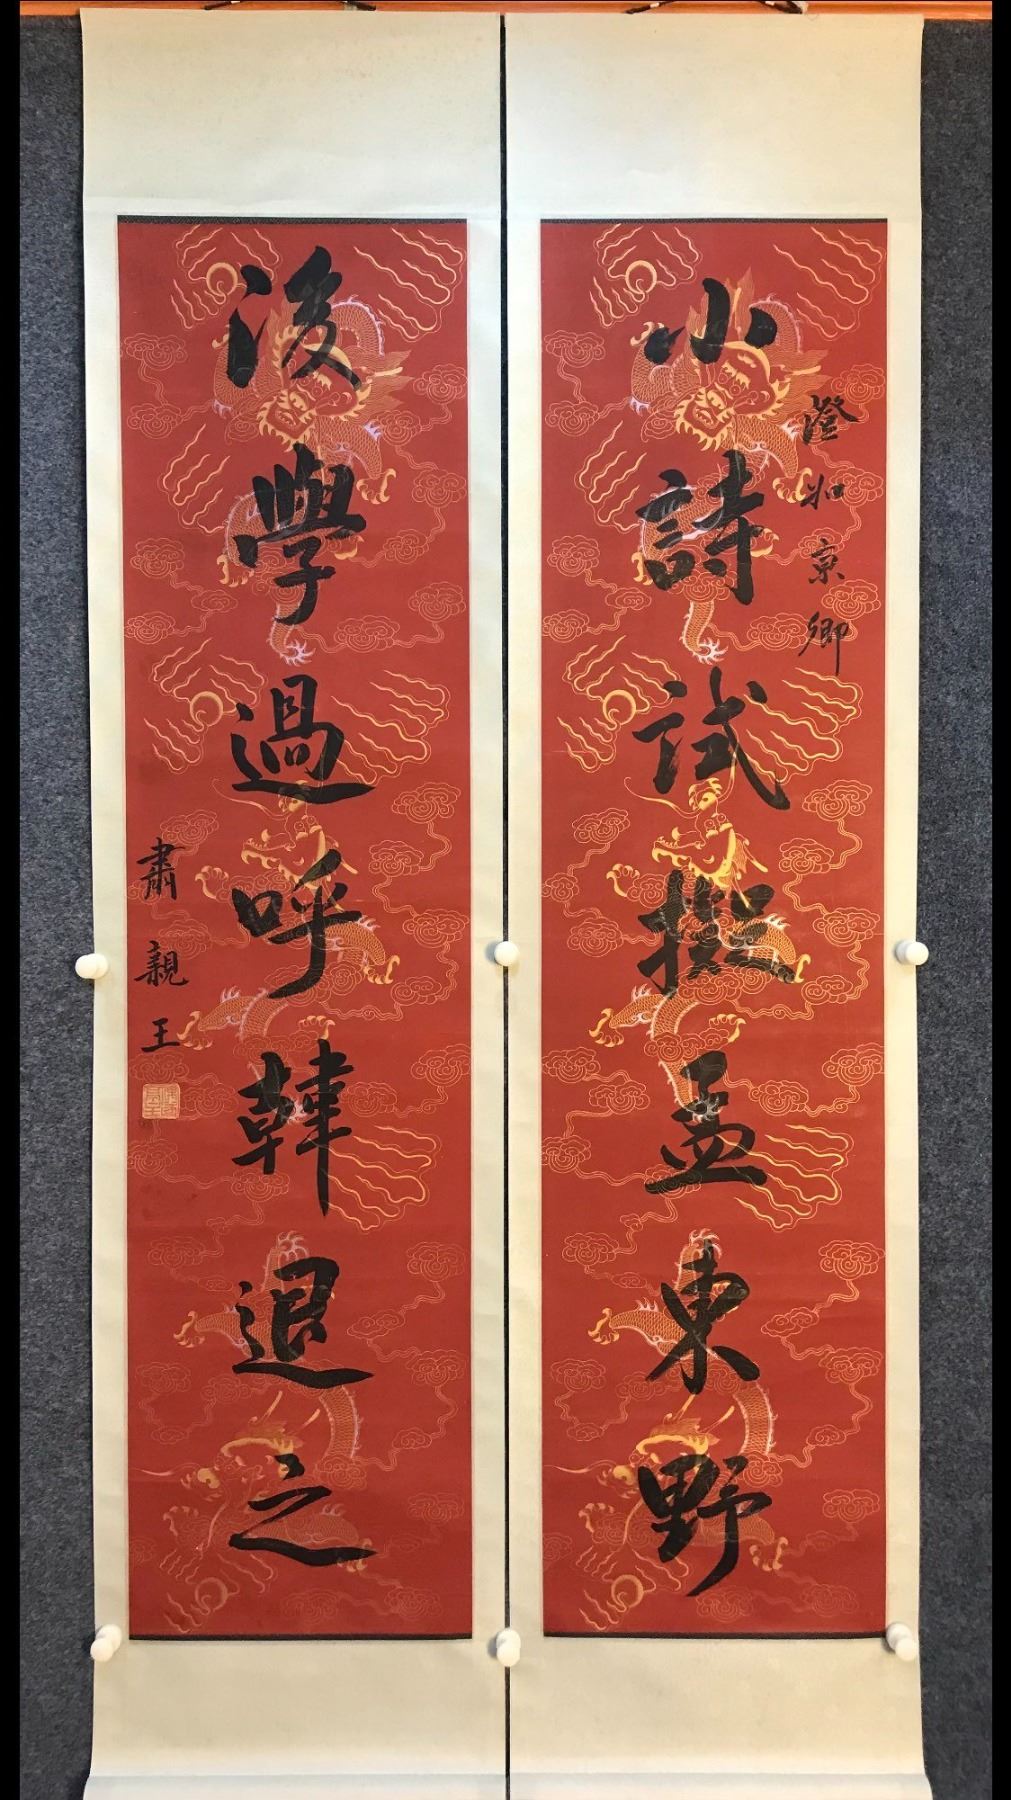 澄如京卿
小詩試擬孟東野
後學過呼韓退之
肅親王